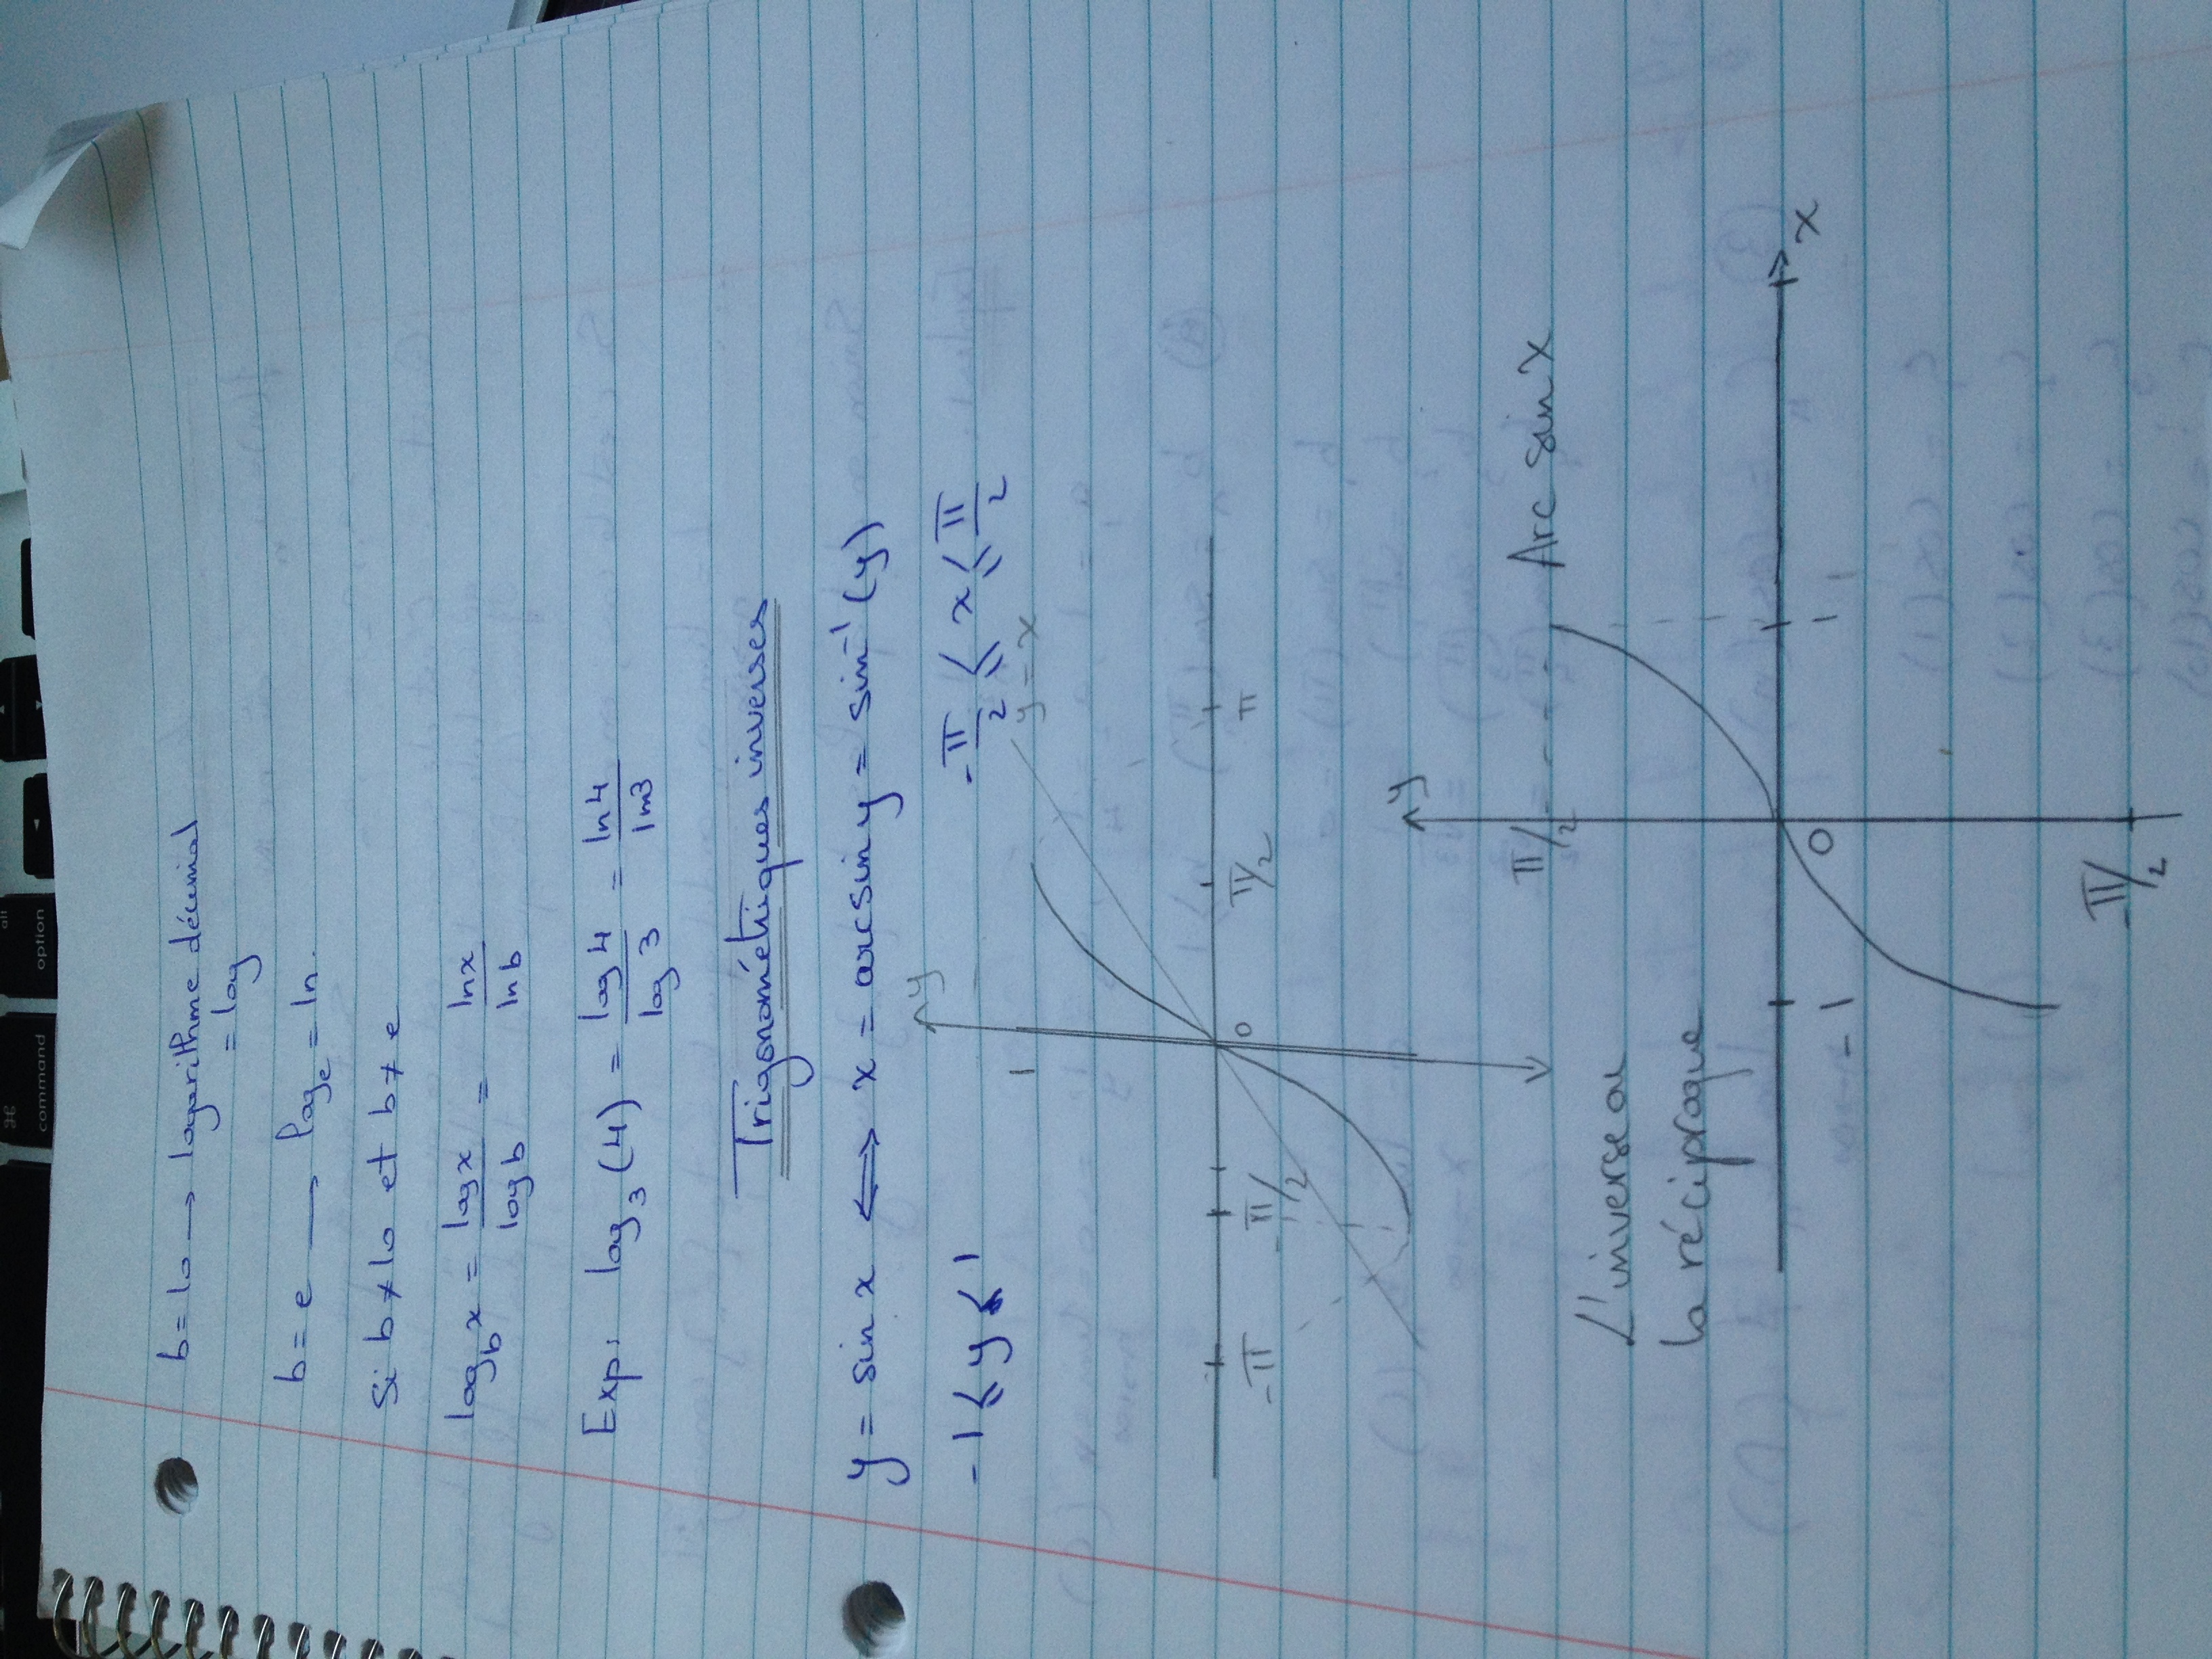 b = 10 → logarithme décimal
= log
b = e → logₑ = ln
Si b ≠ 10 et b ≠ e
log_b x = log x / log b = ln x / ln b
Exp: log₃(4) = log 4 / log 3 = ln 4 / ln 3
Trigonométriques inverses
y = sin x ⟺ x = arcsin y = sin⁻¹(y)
-1 ≤ y ≤ 1   -π/2 ≤ x ≤ π/2
y
y = x
1
-π   -π/2   0   π/2   π
y
π/2
Arc sin x
L'inverse ou
la réciproque
x
-1   0   1
-π/2
command
option
alt